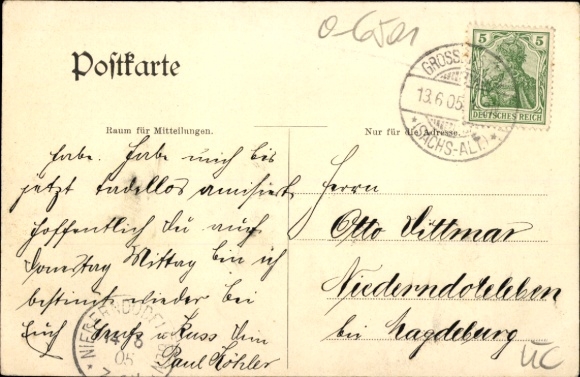 0-6501
Postkarte
5
DEUTSCHES REICH
GROSS
13.6.05
*(SACHS-ALT)*
Raum für Mitteilungen.
Nur für die Adresse.
habe. Habe mich bis
jetzt tadellos amisiert
hoffentlich Du auch
Donestag Mittag bin ich
bestimt wieder bei
Euch Gruß u Kuss Dein
Paul Köhler
Herrn
Otto Dittmar
Niederndodeleben
bei Magdeburg
NIEDERNDODELEBEN
05
UC